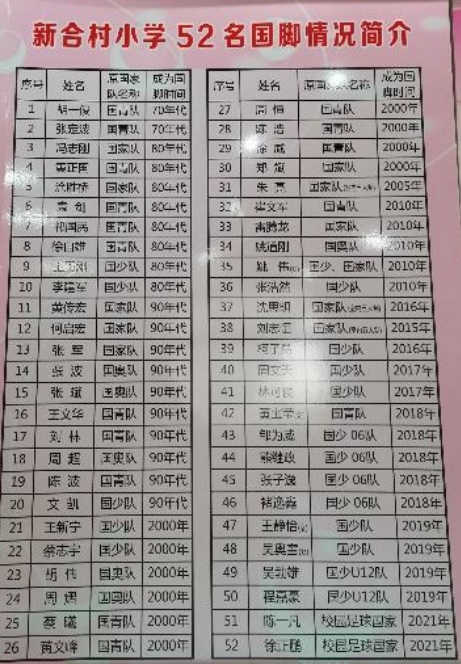 新合村小学52名国脚情况简介
序号 姓名 原国家队名称 成为国脚时间
1 胡一俊 国青队 70年代
2 张定波 国青队 70年代
3 冯志刚 国家队 80年代
4 国青队 80年代
5 国家队 80年代
6 国青队 80年代
7 国青队 80年代
8 徐百雄 国青队 80年代
9 国少队 80年代
10 李建军 国少队 80年代
11 黄传宏 国家队 90年代
12 何启宏 国家队 90年代
13 张军 国家队 90年代
14 张波 国奥队 90年代
15 张斌 国奥队 90年代
16 王文华 国青队 90年代
17 刘林 国青队 90年代
18 周超 国奥队 90年代
19 陈波 国青队 90年代
20 文凯 国少队 90年代
21 王新宁 国少队 2000年
22 蔡志宇 国少队 2000年
23 胡伟 国奥队 2000年
24 周熠 国奥队 2000年
25 蔡曦 国青队 2000年
26 黄文峰 国青队 2000年
序号 姓名 原国家队名称 成为国脚时间
27 周恒 国青队 2000年
28 陈浩 国青队 2000年
29 徐威 国青队 2000年
30 郑斌 国家队 2000年
31 朱亮 国家队 2005年
32 崔文军 国青队 2010年
33 雷腾龙 国家队 2010年
34 姚道刚 国奥队 2010年
35 姚伟 国少、国家队 2010年
36 张浩然 国少队 2010年
37 沈思明 国家队 2016年
38 国家队 2015年
39 国少队 2016年
40 周文天 国少队 2017年
41 国少队 2017年
42 国青队 2018年
43 邹为威 国少06队 2018年
44 熊继政 国少06队 2018年
45 张子逸 国少06队 2018年
46 褚逸鑫 国少06队 2018年
47 王静怡 国少队 2019年
48 国少队 2019年
49 吴勃雄 国少U12队 2019年
50 程嘉豪 国少U12队 2019年
51 陈一凡 校园足球国家 2021年
52 徐正鹏 校园足球国家 2021年